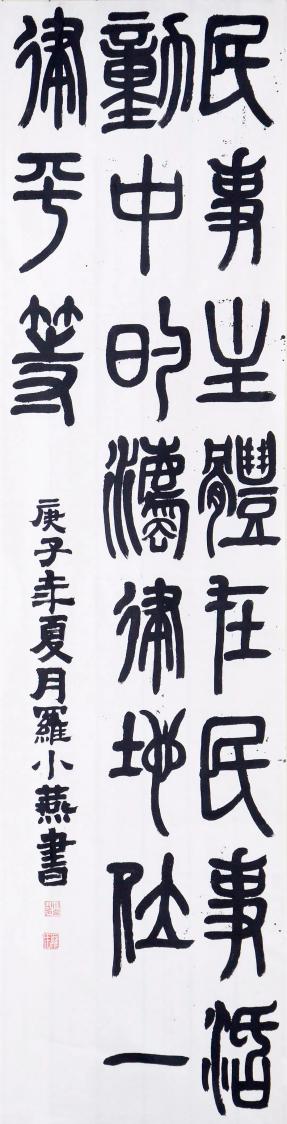 民事主體在民事活
動中的灋律地位一
律平等
庚子年夏月羅小燕書